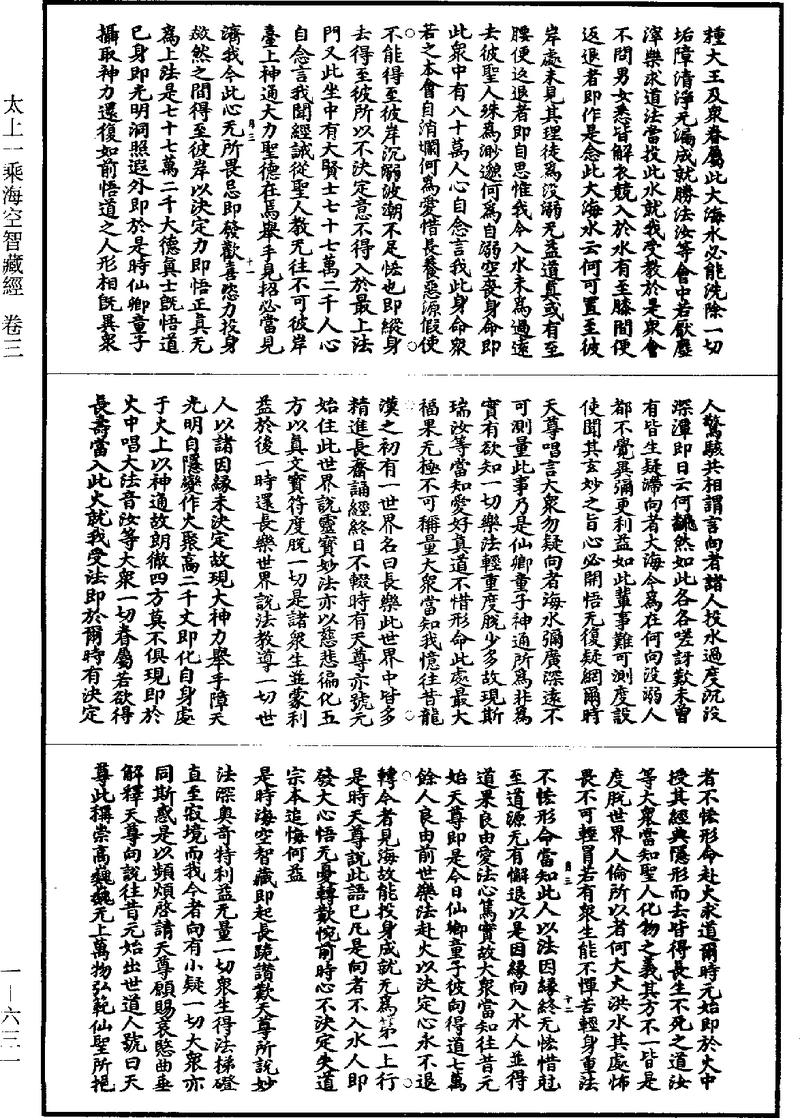 太上一乘海空智藏經 卷三
一—六三一
種大王及衆眷屬此大海水必能洗除一切
垢障清淨无漏成就勝法汝等會中若厭塵
滓樂求道法當投此水就我受教於是衆會
不問男女悉皆解衣競入於水有至膝間便
返退者即作是念此大海水云何可置至彼
岸處未見其理徒爲没溺无益道真或有至
腰便迄退者即自思惟我令入水未爲過遠
去彼聖人殊爲渺邈何爲自溺空喪身命即
此衆中有八十萬人心自念言我此身命衆
若之本會自消爛何爲愛惜長養惡源假使
不能得至彼岸沉溺波潮不足恡也即縱身
去得至彼所以不決定意不得入於最上法
門又此坐中有大賢士七十七萬二千人心
自念言我聞經誡從聖人教无往不可彼岸
臺上神通大力聖德在焉舉手見招必當見
濟我今此心无所畏忌即發歡喜恣力投身
歘然之間得至彼岸以決定力即悟正真无
爲上法是七十七萬二千大德真士既悟道
已身即光明洞照遐外即於是時仙卿童子
攝取神力還復如前悟道之人形相旣異衆
人驚駭共相謂言向者諸人投水過度沉没
深潭即日云何巍然如此各各嗟訝歎未曾
有皆生疑滯向者大海今爲在何向没溺人
都不覺異彌更利益如此輩事難可測度設
使聞其玄妙之旨心必開悟无復疑網爾時
天尊唱言大衆勿疑向者海水彌廣深遠不
可測量此事乃是仙卿童子神通所爲非爲
實有欲知一切樂法輕重度脱少多故現斯
瑞汝等當知愛好真道不惜形命此處最大
福果无極不可稱量大衆當知我憶往昔龍
漢之初有一世界名曰長樂此世界中皆多
精進長齋誦經終日不輟時有天尊亦號元
始住此世界説靈寶妙法亦以慈悲徧化五
方以真文寶符度脱一切是諸衆生並蒙利
益於後一時還長樂世界説法教導一切世
人以諸因緣未決定故現大神力舉手障天
光明自隱變作火聚高二千丈即化自身處
于火上以神通故朗徹四方莫不俱現即於
火中唱大法音汝等大衆一切眷屬若欲得
長壽當入此火就我受法即於爾時有決定
者不恡形命赴火求道爾時元始即於火中
授其經典隱形而去皆得長生不死之道汝
等大衆當知聖人化物之義其方不一皆是
度脱世界人倫所以者何大火洪水其處怖
畏不可輕冒若有衆生能不憚苦輕身重法
不恡形命當知此人以法因緣終无恡惜尅
至道源无有懈退以是因緣向入水人並得
道果良由愛法心篤實故大衆當知往昔元
始天尊即是今日仙卿童子彼向得道七萬
餘人良由前世樂法赴火以決定心永不退
轉今者見海故能投身成就无爲第一上行
是時天尊説此語已凡是向者不入水人即
發大心悟无憂轉歎惋前時心不決定失道
宗本追悔何益
是時海空智藏即起長跪讚歎天尊所説妙
法深奥奇特利益无量一切衆生得法梯磴
直至寂境而我今者向有小疑一切大衆亦
同斯惑是以頻煩啓請天尊願賜哀愍曲垂
解釋天尊向説往昔元始出世道人號曰天
尊此稱崇高巍巍无上萬物弘範仙聖所挹